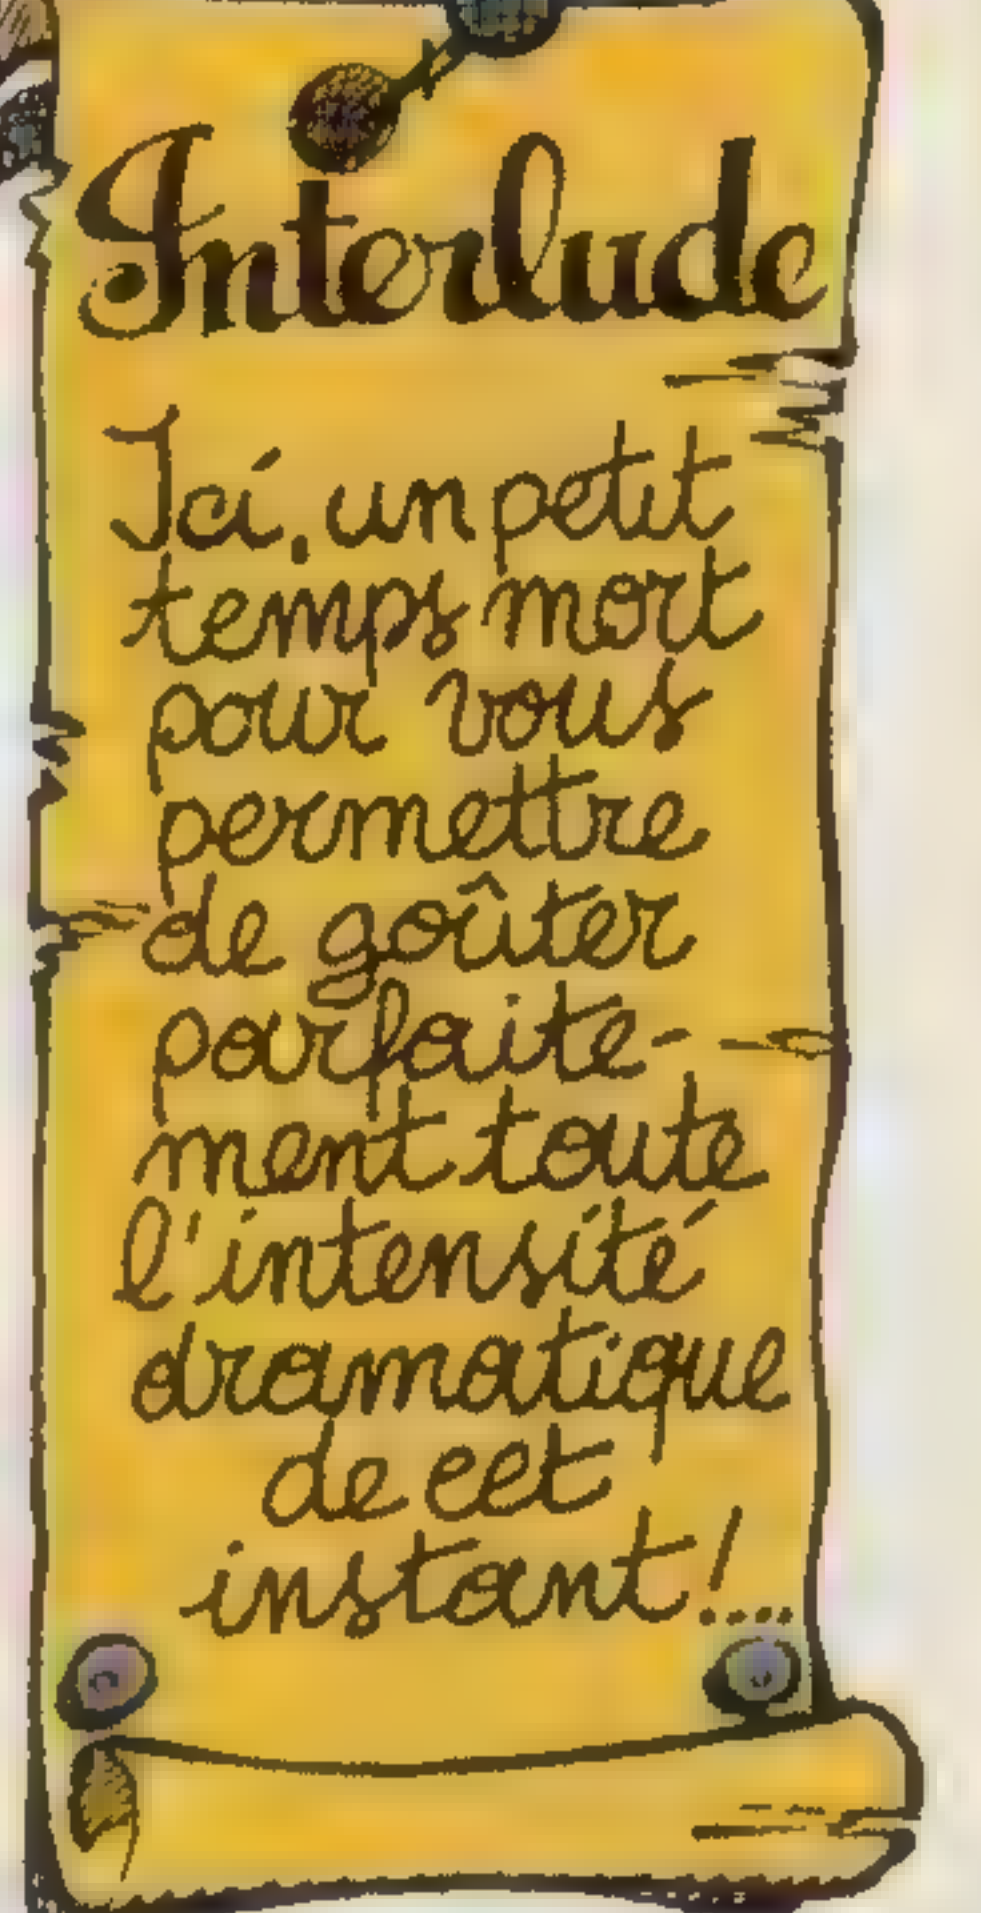 Interlude
Ici, un petit
temps mort
pour vous
permettre
de goûter
parfaite-
ment toute
l'intensité
dramatique
de cet
instant!....